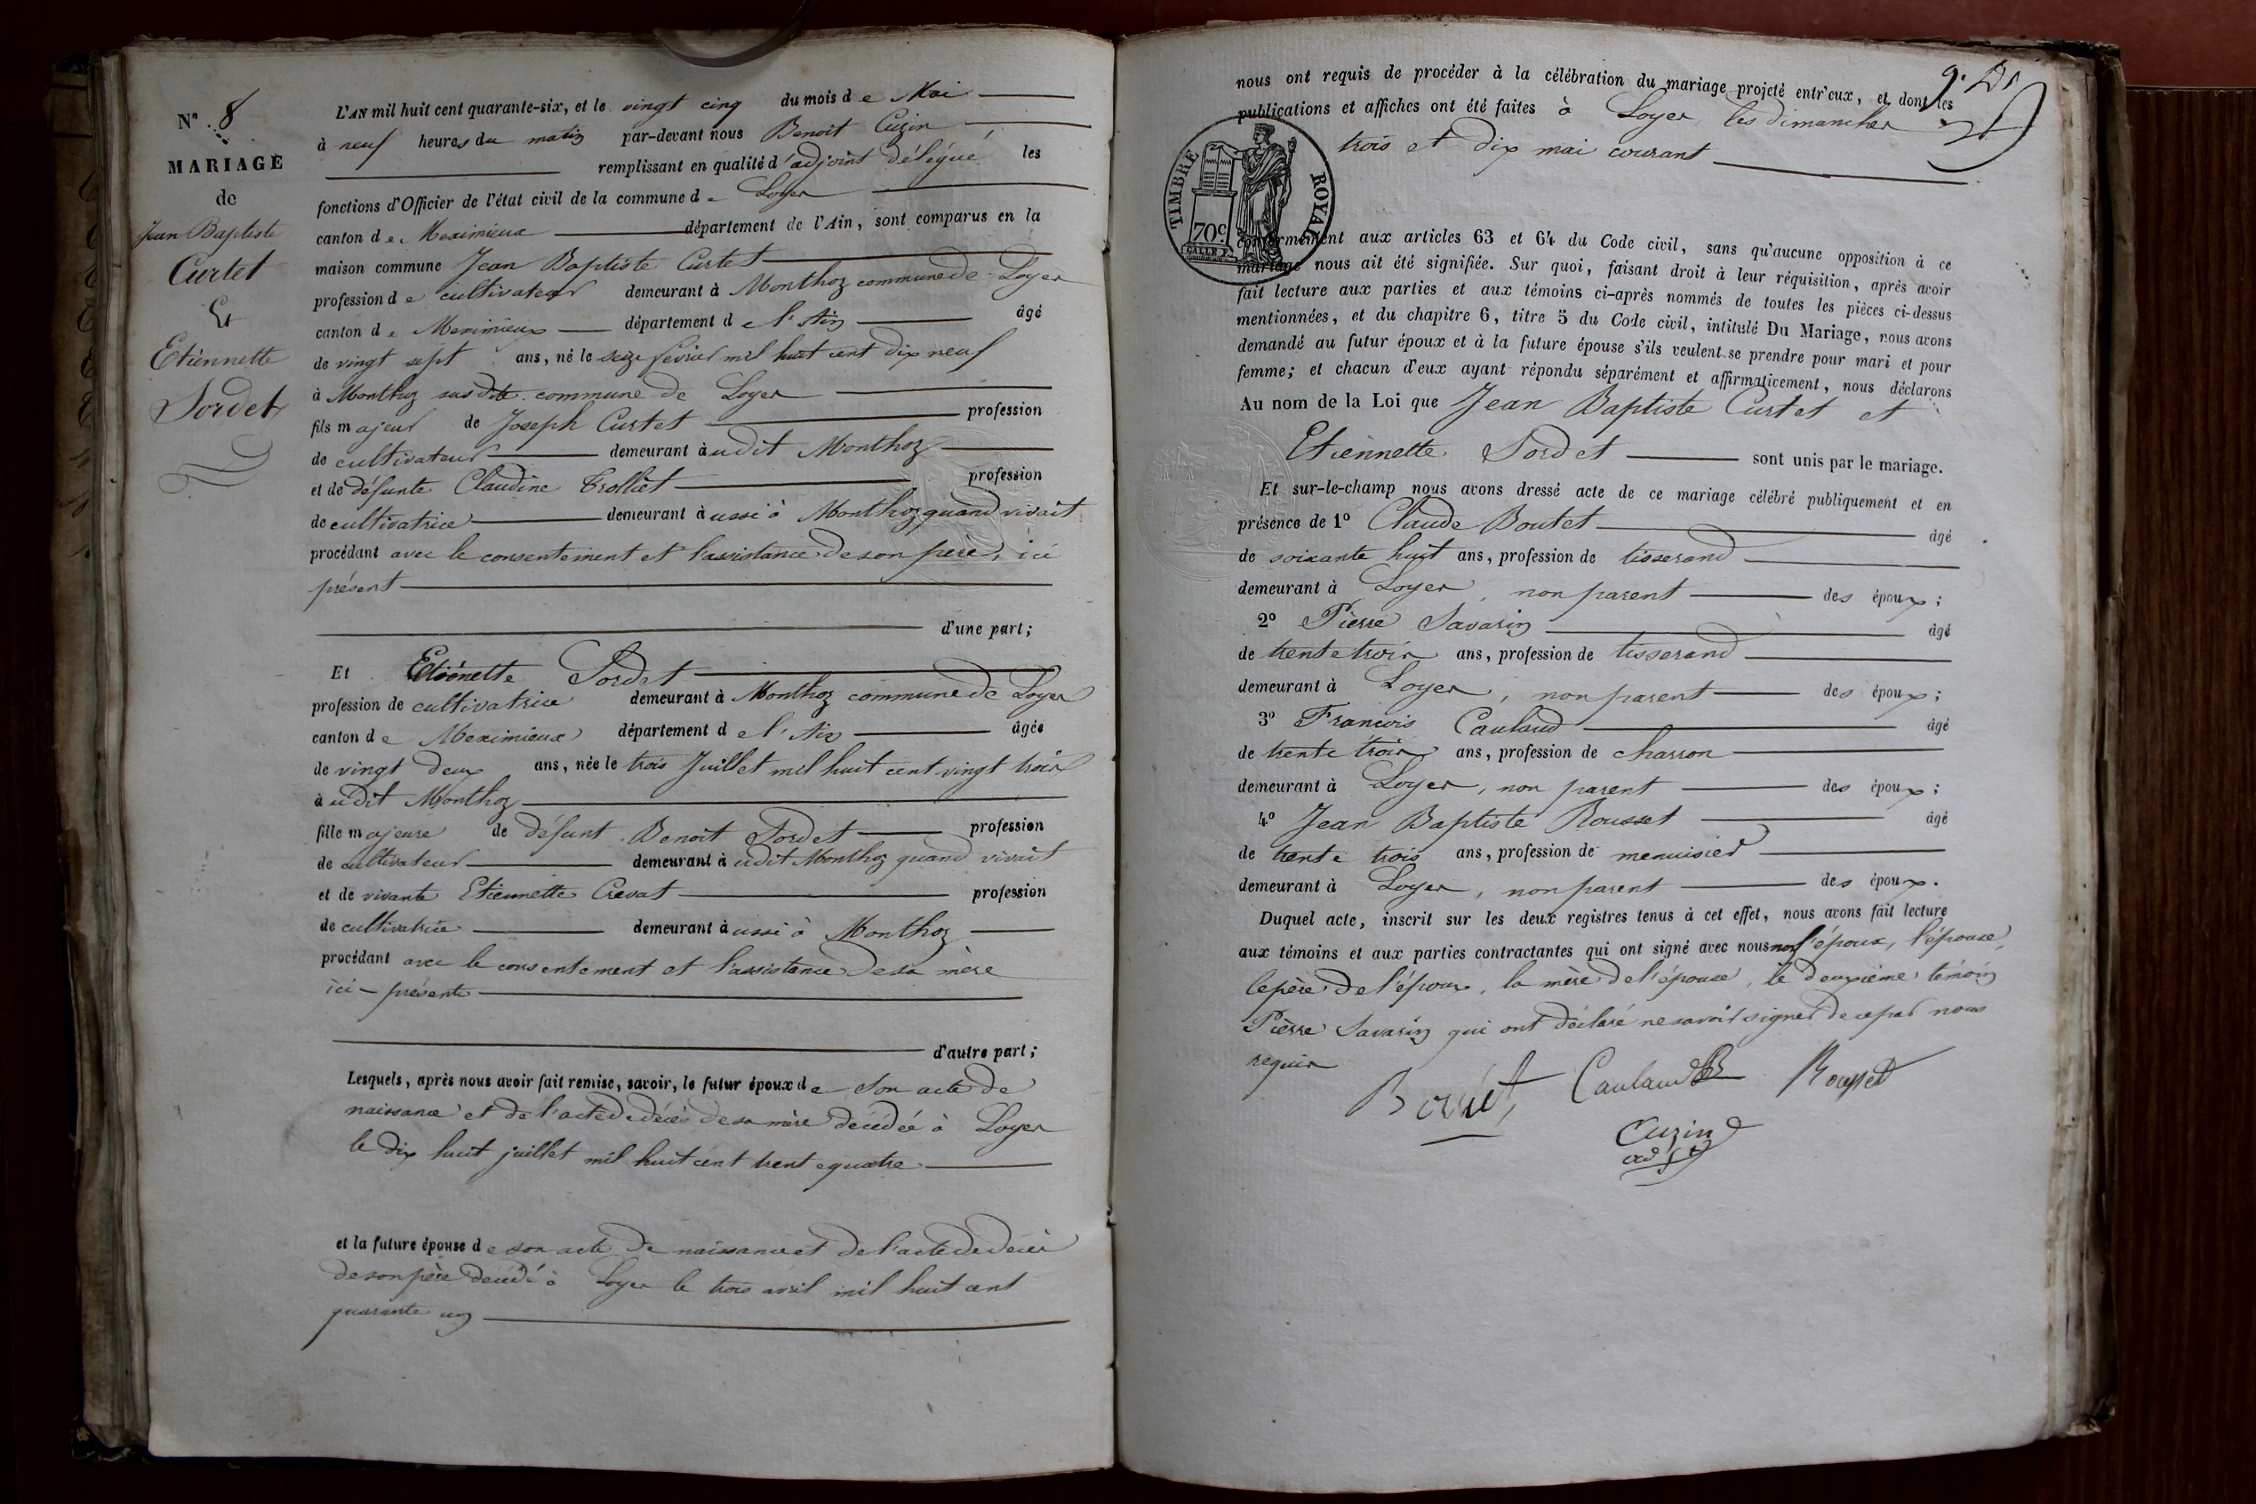 N° 8
MARIAGE
de
Jean Baptiste
Curtet
Et
Etiennette
Sordet
L'AN mil huit cent quarante-six, et le vingt cinq du mois de Mai
à neuf heures du matin par-devant nous Benoit Cuzin
remplissant en qualité d'adjoint délégué les
fonctions d'Officier de l'état civil de la commune de Loyes
canton de Meximieux département de l'Ain, sont comparus en la
maison commune Jean Baptiste Curtet
profession de cultivateur demeurant à Monthoz commune de Loyes
canton de Meximieux département de l'Ain âgé
de vingt sept ans, né le seize fevrier mil huit cent dix neuf
à Monthoz susdite commune de Loyes
fils majeur de Joseph Curtet profession
de cultivateur demeurant audit Monthoz
et de défunte Claudine Trolliet profession
de cultivatrice demeurant aussi à Monthoz quand vivait
procédant avec le consentement et l'assistance de son père, ici
présent
d'une part;
Et Etiénette Sordet
profession de cultivatrice demeurant à Monthoz commune de Loyes
canton de Meximieux département de l'Ain âgée
de vingt deux ans, née le trois Juillet mil huit cent vingt trois
audit Monthoz
fille majeure de défunt Benoit Sordet profession
de cultivateur demeurant audit Monthoz quand vivait
et de vivante Etiennette Crevat profession
de cultivatrice demeurant aussi à Monthoz
procédant avec le consentement et l'assistance de sa mère
ici présente
d'autre part;
Lesquels, après nous avoir fait remise, savoir, le futur époux de son acte de
naissance et de l'acte de décès de sa mère décédée à Loyes
le dix huit juillet mil huit cent trente quatre
et la future épouse de son acte de naissance et de l'acte de décès
de son père décédé à Loyes le trois avril mil huit cent
quarante un
nous ont requis de procéder à la célébration du mariage projeté entr'eux, et dont les
publications et affiches ont été faites à Loyes les dimanches
trois et dix mai courant
TIMBRE ROYAL
70c
conformément aux articles 63 et 64 du Code civil, sans qu'aucune opposition à ce
mariage nous ait été signifiée. Sur quoi, faisant droit à leur réquisition, après avoir
fait lecture aux parties et aux témoins ci-après nommés de toutes les pièces ci-dessus
mentionnées, et du chapitre 6, titre 5 du Code civil, intitulé Du Mariage, nous avons
demandé au futur époux et à la future épouse s'ils veulent se prendre pour mari et pour
femme; et chacun d'eux ayant répondu séparément et affirmativement, nous déclarons
Au nom de la Loi que Jean Baptiste Curtet et
Etiennette Sordet sont unis par le mariage.
Et sur-le-champ nous avons dressé acte de ce mariage célébré publiquement et en
présence de 1° Claude Boutet âgé
de soixante huit ans, profession de tisserand
demeurant à Loyes, non parent des époux;
2° Pierre Savarin âgé
de trente trois ans, profession de tisserand
demeurant à Loyes, non parent des époux;
3° Francois Caulaud âgé
de trente trois ans, profession de charron
demeurant à Loyes, non parent des époux;
4° Jean Baptiste Rousset âgé
de trente trois ans, profession de menuisier
demeurant à Loyes, non parent des époux.
Duquel acte, inscrit sur les deux registres tenus à cet effet, nous avons fait lecture
aux témoins et aux parties contractantes qui ont signé avec nous non l'époux, l'épouse,
le père de l'époux, la mère de l'épouse, le deuxième témoin
Pierre Savarin qui ont déclaré ne savoir signer de ce par nous
requis
Caulaud Rousset
Cuzin
adjt